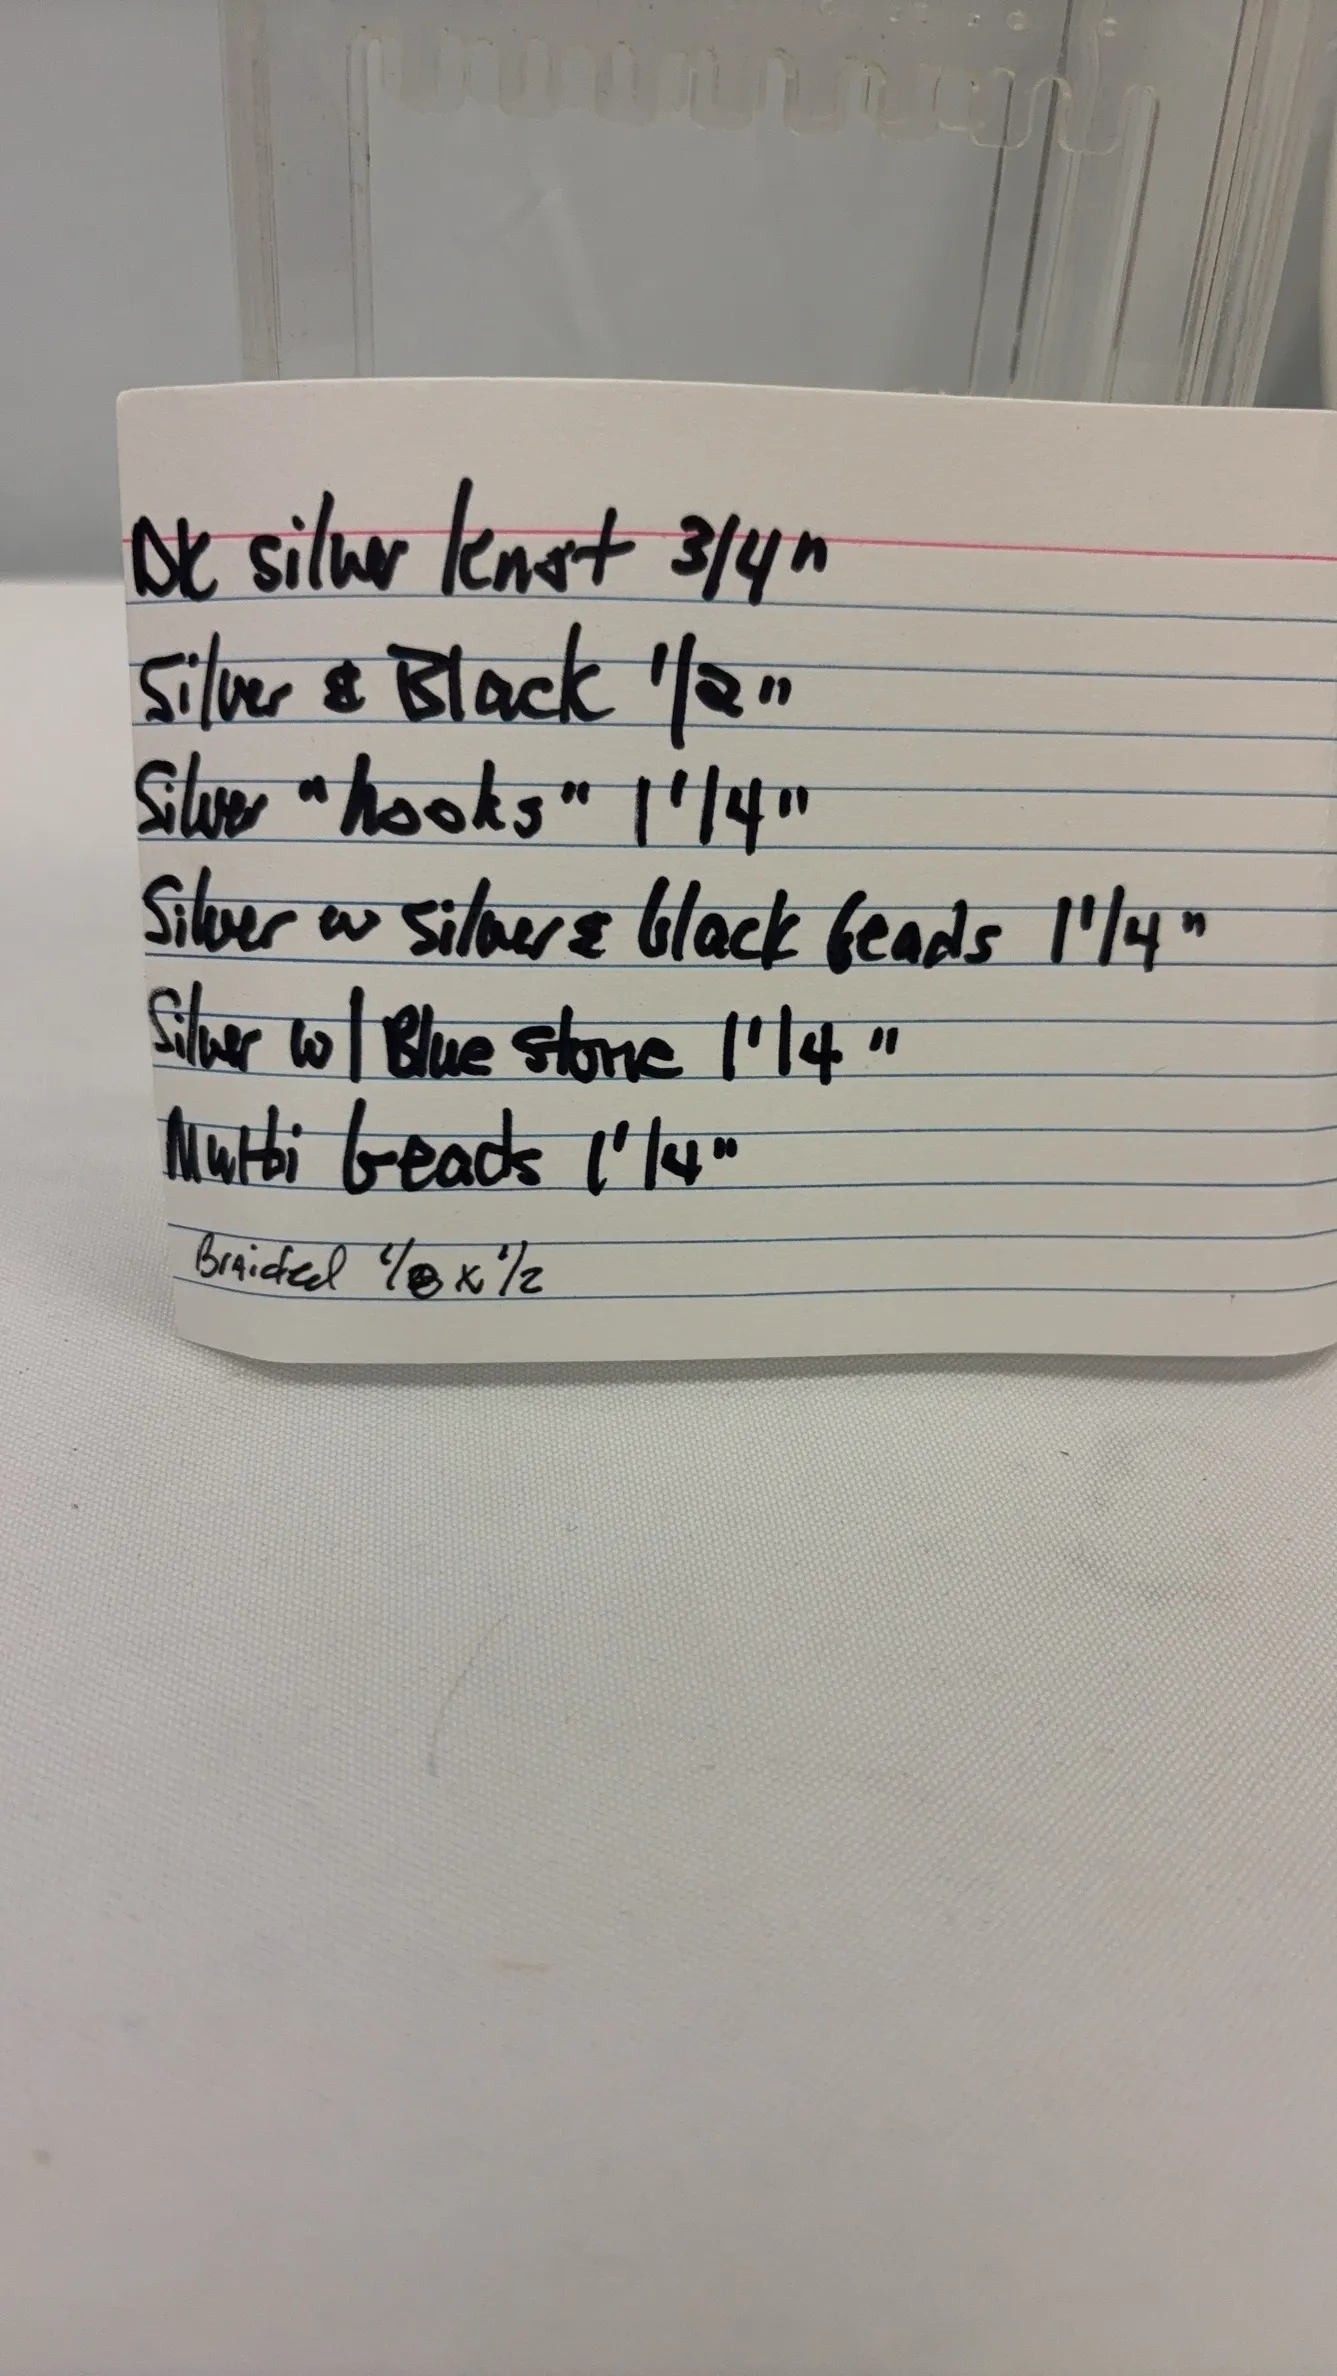 Dk silver knot 3/4"
Silver & Black 1/2"
Silver "hooks" 1 1/4"
Silver w silver & black beads 1 1/4"
Silver w/ Blue stone 1 1/4"
Multi beads 1 1/4"
Braided 1/8 x 1/2